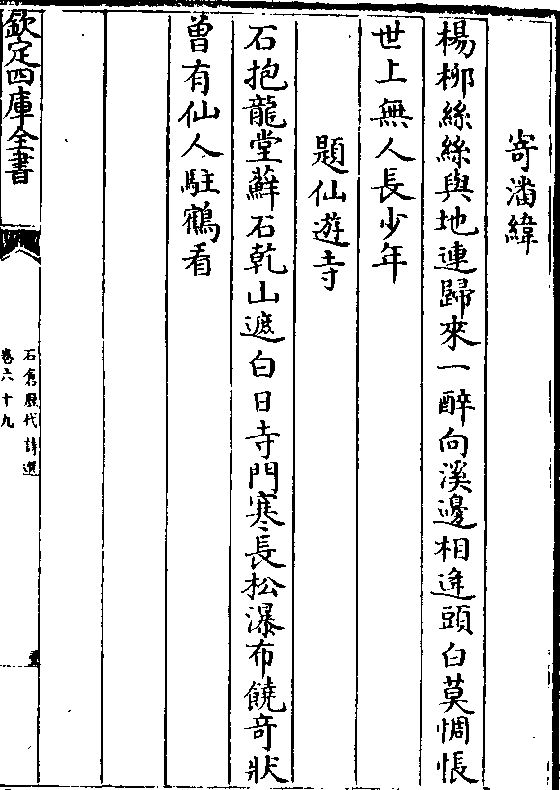 寄潘緯
楊栁絲絲與地連歸來一醉向溪邊相逄頭白莫惆悵
世上無人長少年
題仙遊寺
石抱龍堂蘚石乾山遮白日寺門寒長松瀑布饒竒狀
曽有仙人駐鶴看
欽定四庫全書
石倉歷代詩選
卷六十九